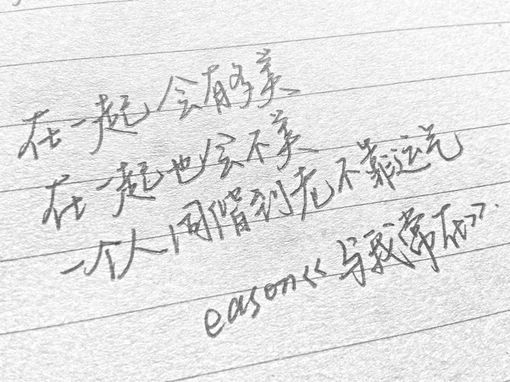 在一起会有多美
在一起也会不美
一个人同偕到老不靠运气
eason《与我常在》.